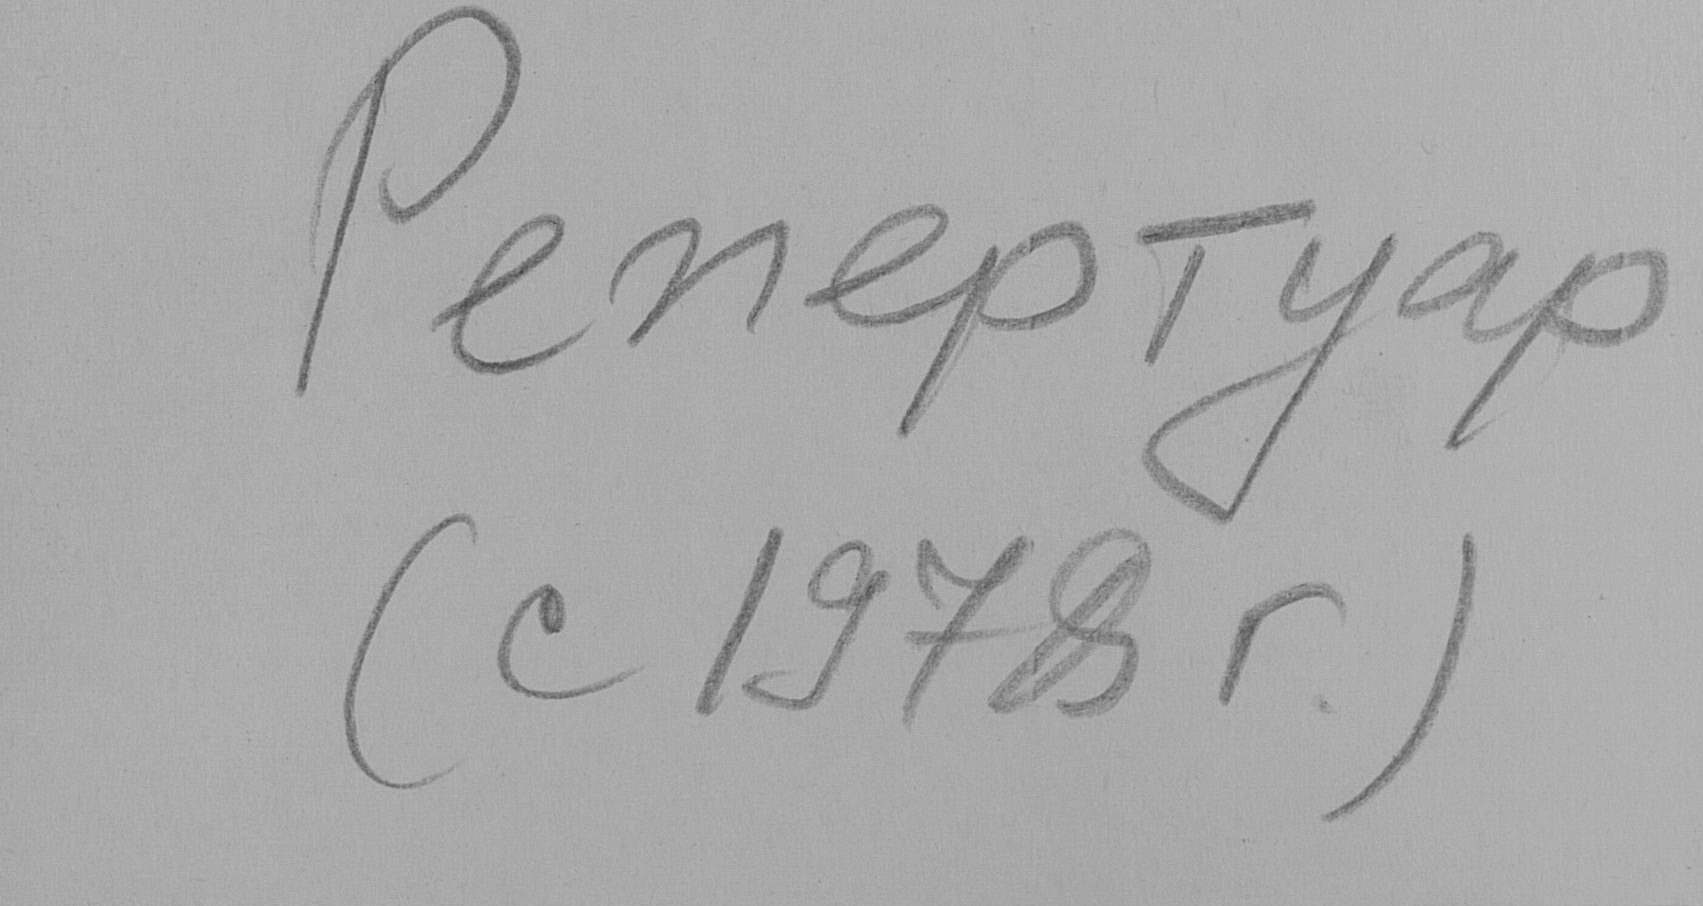 Репертуар
(с 1978 г.)